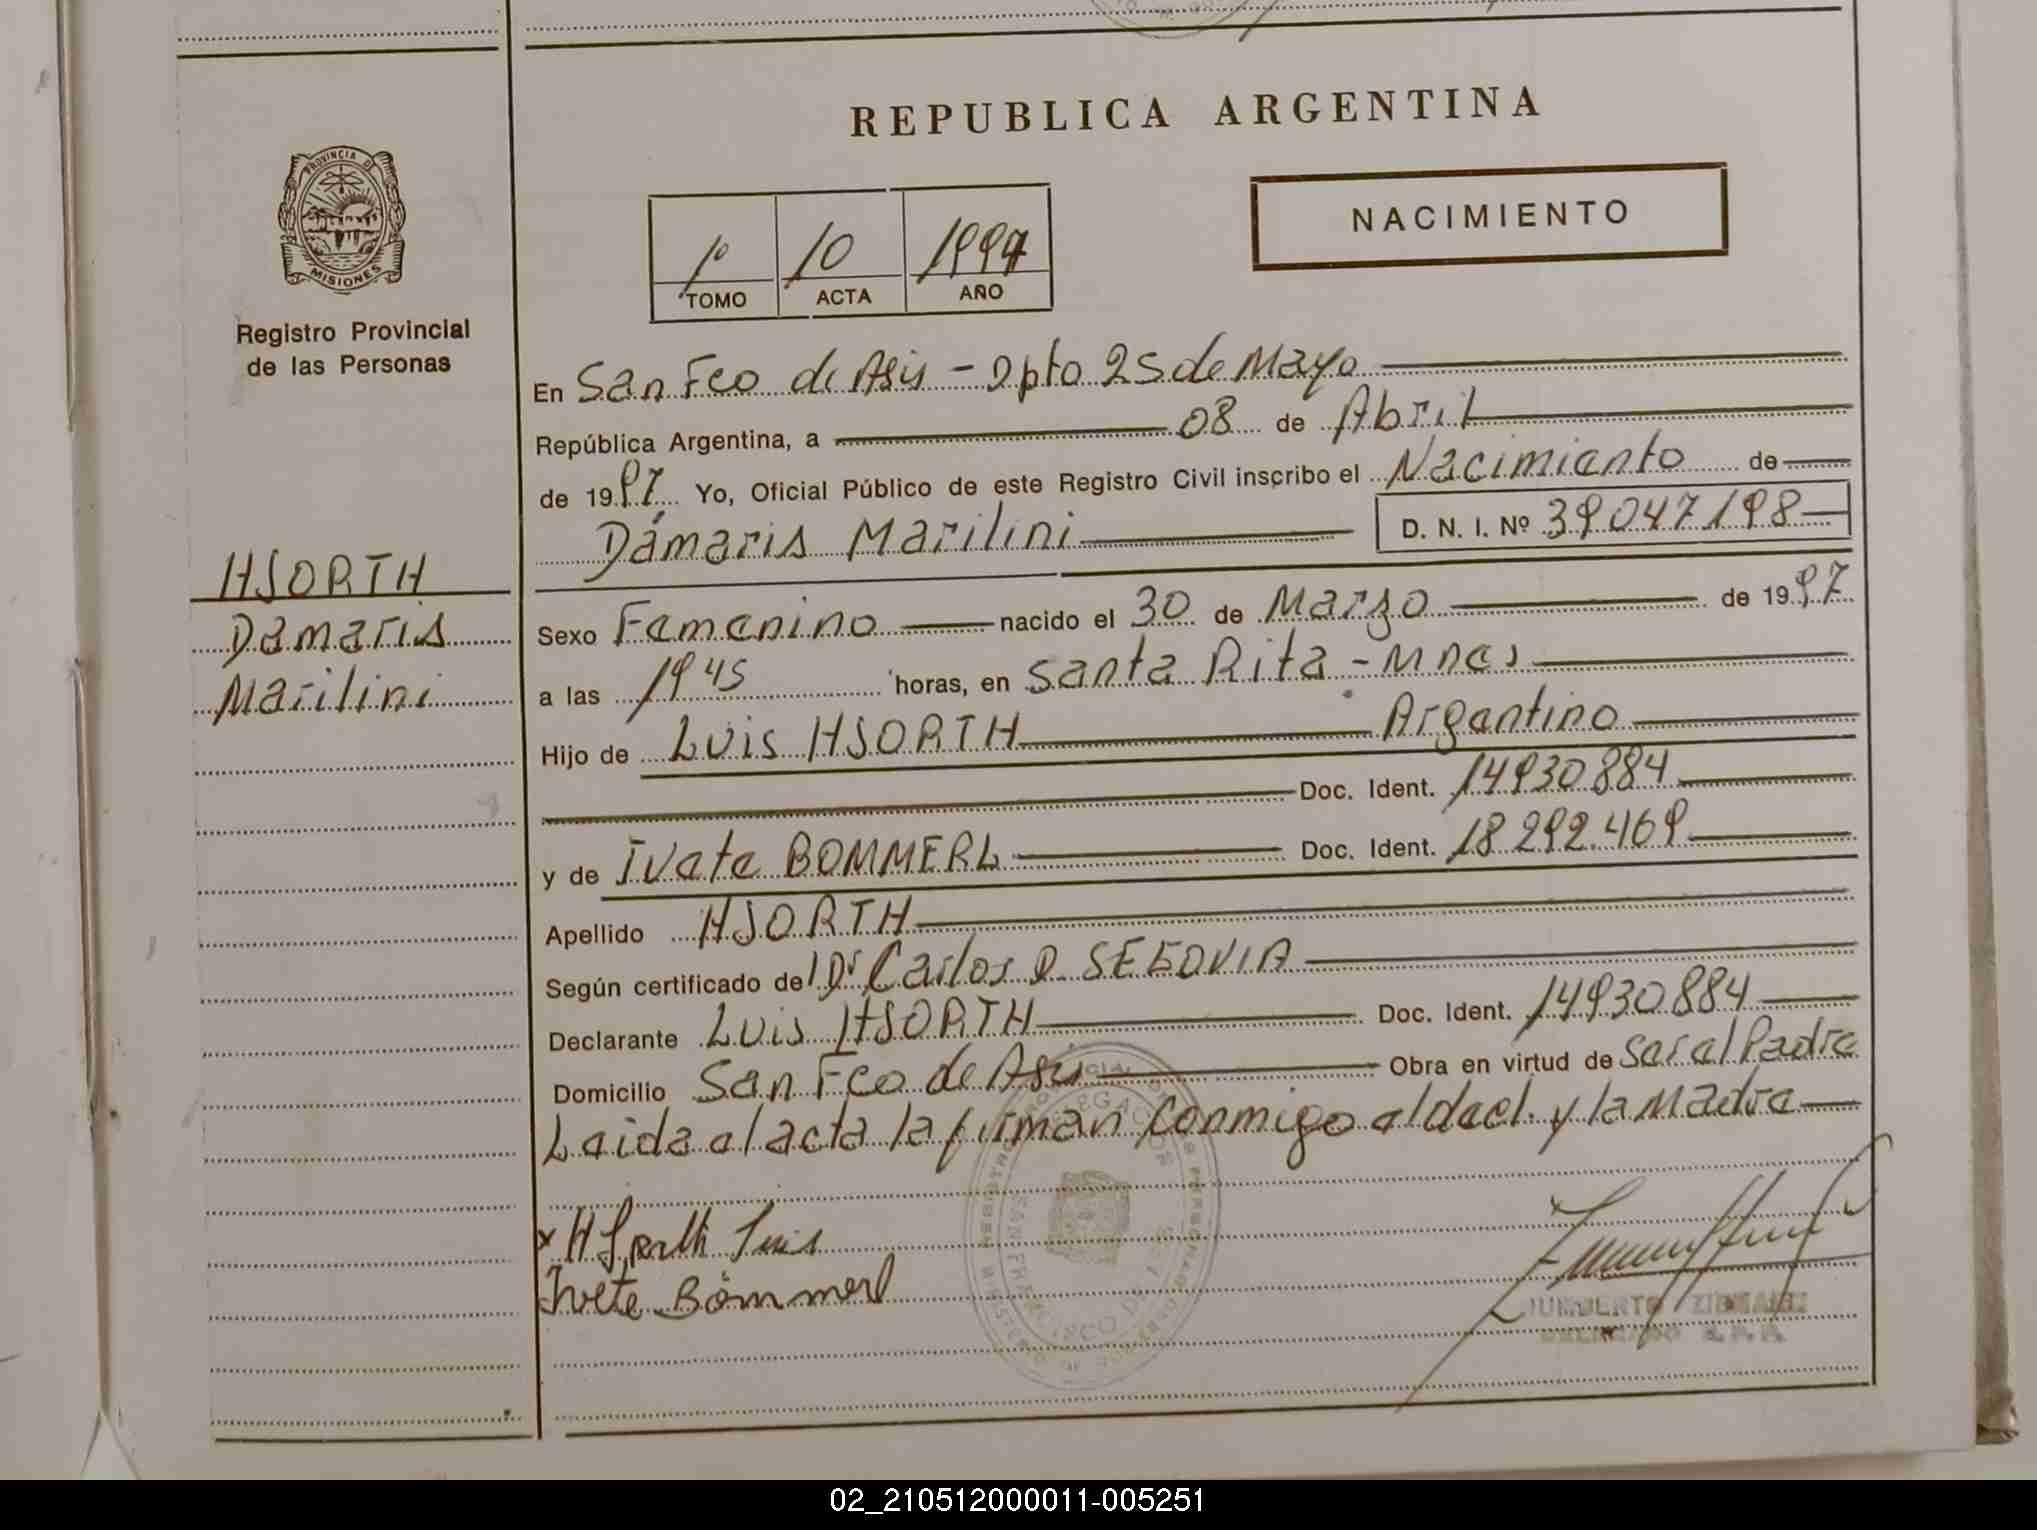 REPUBLICA ARGENTINA
PROVINCIA DE
MISIONES
Registro Provincial
de las Personas
NACIMIENTO
1º 10 1997
TOMO ACTA AÑO
En San Fco de Asis - Dpto 25 de Mayo
República Argentina, a 08 de Abril
de 1997 Yo, Oficial Público de este Registro Civil inscribo el Nacimiento de
Dámaris Marilini D. N. I. Nº 39047198
HJORTH
Damaris
Marilini
Sexo Femenino nacido el 30 de Marzo de 1997
a las 19 45 horas, en Santa Rita - Mnes
Hijo de Luis HJORTH Argentino
Doc. Ident. 14930884
y de Ivete BOMMERL Doc. Ident. 18292.469
Apellido HJORTH
Según certificado del Dr Carlos D. SEGOVIA
Declarante Luis HJORTH Doc. Ident. 14930884
Domicilio San Fco de Asis Obra en virtud de Ser el Padre
Leida el acta la firman conmigo el decl. y la Madre
Luis
Ivete Bommerl
SAN FRANCISCO DE ASIS
HUMBERTO
02_210512000011-005251